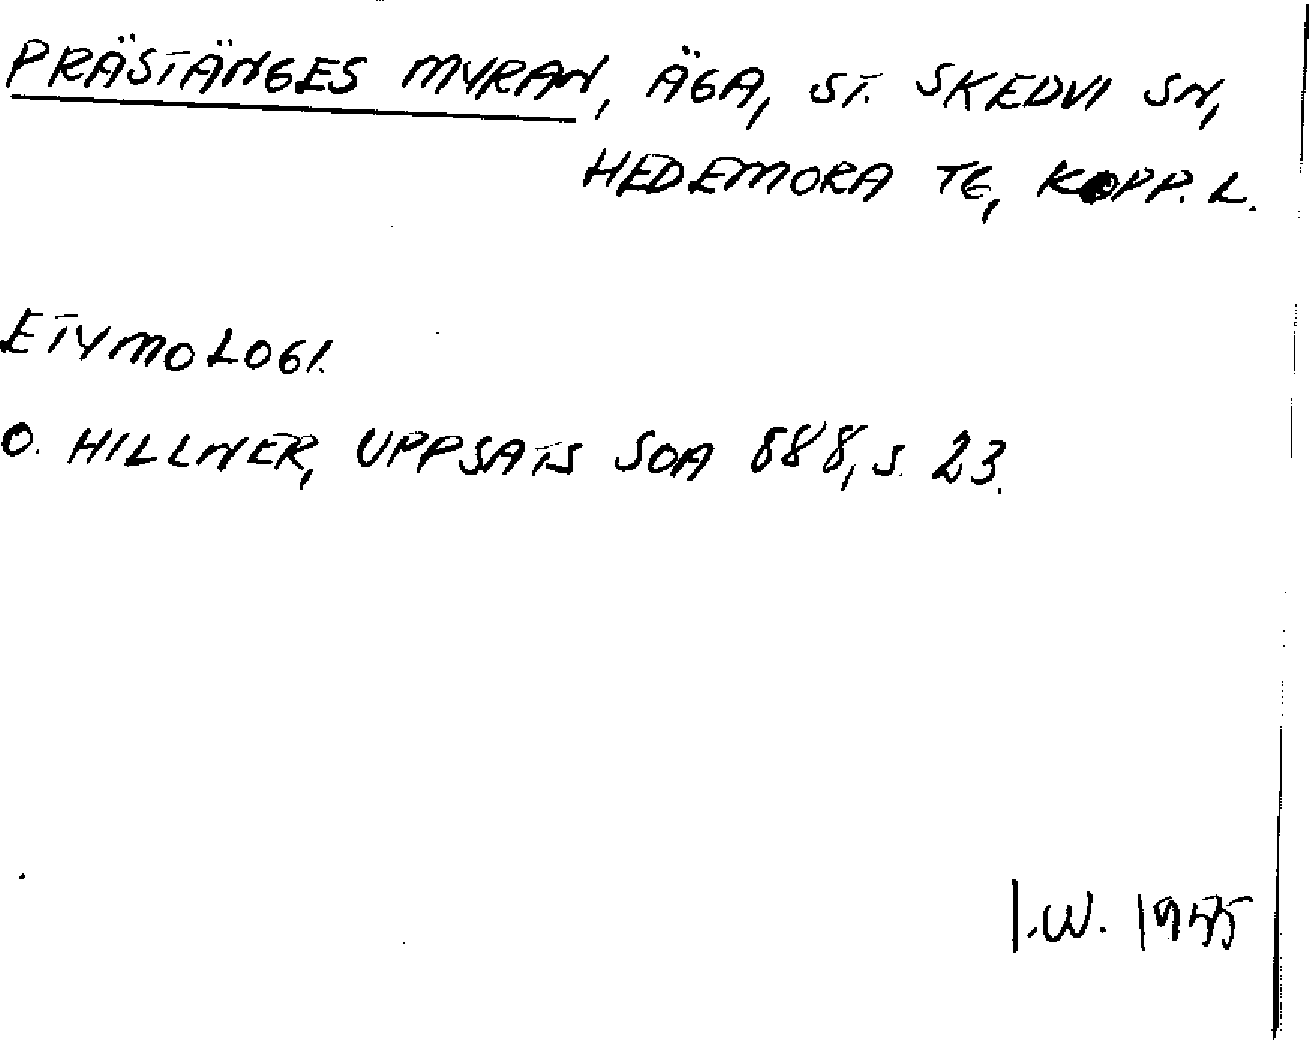 PRÄSTÄNGES MYRAN, ÄGA, ST. SKEDVI SN,
HEDEMORA TG, KOPP. L.
ETYMOLOGI.
O. HILLNER, UPPSATS SOA 888, S. 23.
I.W. 1955